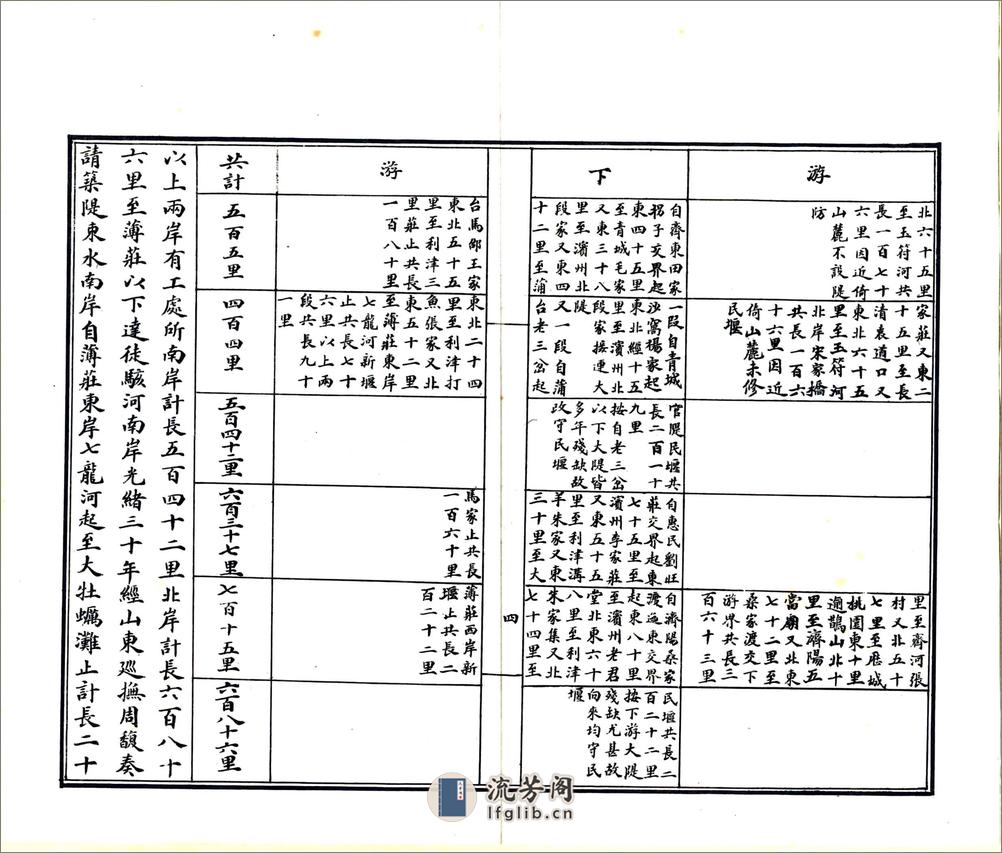 游
北六十五里
至玉符河共
長一百七十
六里因近倚
山麓不設隄
防
家莊又東二
十五里至長
清袁道口又
東北六十五
里至玉符河
北岸宋家橋
共長一百六
十六里因近
倚山麓未修
民堰
里至齊河張
村又北五十
七里至歷城
桃園東十里
過鵲山北十
里至濟陽五
當廟又北東
七十二里至
桑家渡交下
游界共長三
百六十三里
下
自齊東田家
拐子交界起
東四十五里
至青城毛家
又東三十八
里至濱州北
段家又東四
十二里至蒲
一段自青城
沙窩楊家起
東北經十五
里至濱州北
段家接連大
隄
又一段自蒲
台老三岔起
官隄民堰共
長二百一十
九里
按自老三岔
以下大隄皆
多年殘缺故
改守民堰
自惠民劉旺
莊交界起東
七十五里至
濱州李家莊
又東五十五
里至利津溝
羊朱家又東
三十里至大
自濟陽桑家
渡迤東交界
起東八十里
至濱州老君
堂北東六十
八里至利津
朱家集又北
七十四里至
民堰共長二
百二十二里
按下游大隄
殘缺尤甚故
向來均守民
堰
四
游
台馬邵王家
東北五十五
里至利津三
里莊止共長
一百八十里
東北二十四
里至利津打
魚張家又北
東五十二里
至薄莊東岸
七龍河新堰
止共長七十
六里以上兩
段共長九十
一里
馬家止共長
一百六十里
薄莊西岸新
堰止共長二
百二十二里
共計
五百五里
四百四里
五百四十二里
六百三十七里
七百十五里
六百八十六里
以上兩岸有工處所南岸計長五百四十二里北岸計長六百八十
六里至薄莊以下達徒駭河南岸光緒三十年經山東巡撫周馥奏
請築隄束水南岸自薄莊東岸七龍河起至大牡蠣灘止計長二十
流芳阁
lfglib.cn